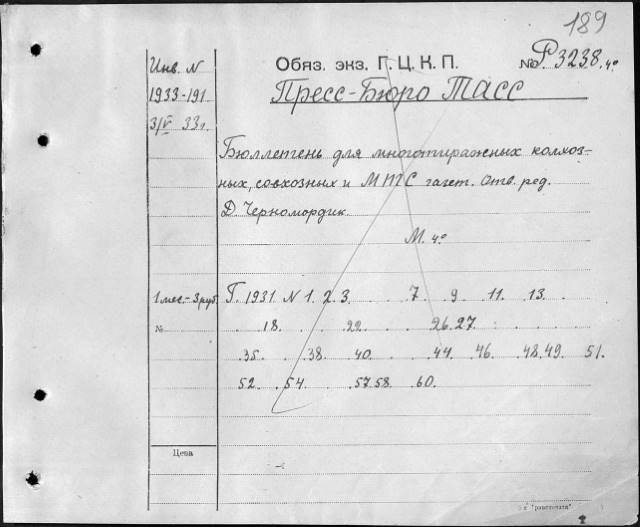 189
Обяз. экз. Г. Ц. К. П. № Р3238.4°
Инв. N
1933-191
3/V 33г.
Пресс-Бюро Тасс
Бюллетень для многотиражных колхоз-
ных, совхозных и МТС газет. Отв. ред.
Д. Черномордик.
М. 4°
1 мес.- 3 руб. Г. 1931. N 1. 2. 3. . . 7. . 9. . 11. . 13. .
№ . . 18. . . . 22. . . . 26. 27. : . . . .
. 35. . . 38. . 40. . . . 44. . 46. . . 48. 49. . 51.
52. . 54. . . 57. 58. . 60.
Цена